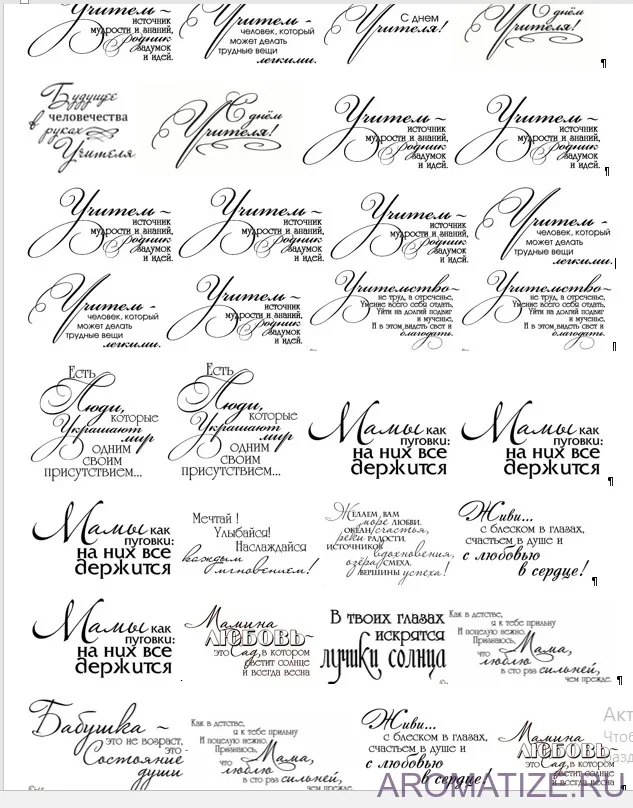 источник
мудрости и знаний,
родник
задумок
и идей.
человек, который
может делать
трудные вещи
легкими.
С днем
Учителя!
Учителя!
Будущее
человечества
в руках
Учителя
С днём
Учителя!
Учитель ~
источник
мудрости и знаний,
родник
задумок
и идей.
Учитель ~
источник
мудрости и знаний,
родник
задумок
и идей.
Учитель ~
источник
мудрости и знаний,
родник
задумок
и идей.
Учитель ~
источник
мудрости и знаний,
родник
задумок
и идей.
Учитель ~
источник
мудрости и знаний,
родник
задумок
и идей.
Учитель -
человек, который
может делать
трудные вещи
легкими.
Учитель -
человек, который
может делать
трудные вещи
легкими.
Учитель ~
источник
мудрости и знаний,
родник
задумок
и идей.
Учительство~
не труд, а отреченье,
Умение всего себя отдать,
Уйти на долгий подвиг
и мученье,
И в этом видеть свет и
благодать.
Учительство~
не труд, а отреченье,
Умение всего себя отдать,
Уйти на долгий подвиг
и мученье,
И в этом видеть свет и
благодать.
Есть
Люди,
которые
Украшают
мир
одним
своим
присутствием...
Есть
Люди,
которые
Украшают
мир
одним
своим
присутствием...
Мамы как
пуговки:
на них все
держится
Мамы как
пуговки:
на них все
держится
Мамы как
пуговки:
на них все
держится
Мечтай !
Улыбайся!
Наслаждайся
каждым
мгновением!
Желаем вам
море любви,
океан счастья,
реки радости,
источников
вдохновения,
озёра смеха,
вершины успеха!
Живи...
с блеском в глазах,
счастьем в душе и
с любовью
в сердце!
Мамы как
пуговки:
на них все
держится
Мамина
ЛЮБОВЬ~
это Сад, в котором
светит солнце
и всегда весна
В твоих глазах
искрятся
лучики солнца
Как в детстве,
я к тебе прильну
И поцелую нежно.
Признаюсь,
что Мама,
люблю
в сто раз сильней,
чем прежде.
Бабушка ~
это не возраст,
это -
Состояние
души
Как в детстве,
я к тебе прильну
И поцелую нежно.
Признаюсь,
что Мама,
люблю
в сто раз сильней,
чем прежде.
Живи...
с блеском в глазах,
счастьем в душе и
с любовью
в сердце!
Мамина
ЛЮБОВЬ~
это Сад, в котором
светит солнце
и всегда весна
Акт
Чтоб
разд
AROMATIZE.RU